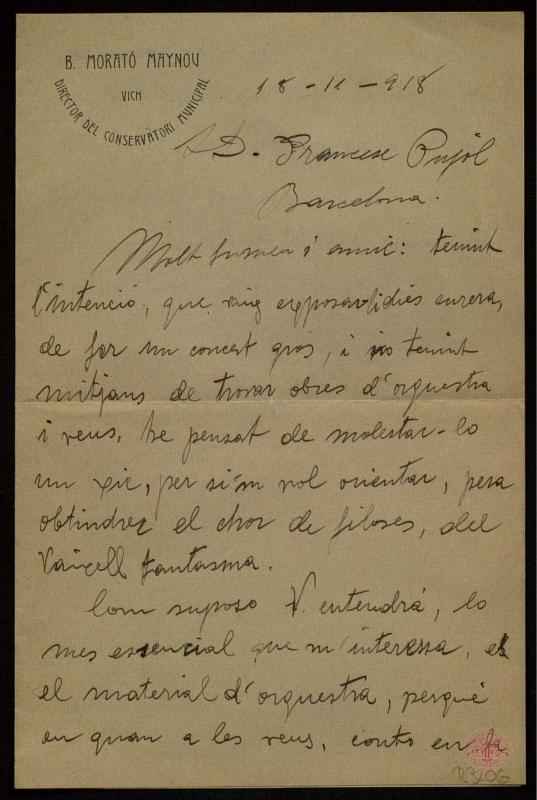 B. MORATÓ MAYNOU
VICH
DIRECTOR DEL CONSERVATORI MUNICIPAL
18-11-918
D. Francesc Pujol
Barcelona.
Molt senyor i amic: tenint
l'intenció, que vaig exposarli dies enrera,
de fer un concert gros, i no tenint
mitjans de trovar obres d'orquestra
i veus, he pensat de molestar-lo
un xic, per si'm vol orientar, pera
obtindrer el chor de filoses, del
Vaixell fantasma.
Com suposo V. entendrá, lo
mes essencial que m'interessa, es
el material d'orquestra, perqué
en quan a les veus, conto en fa
R3206